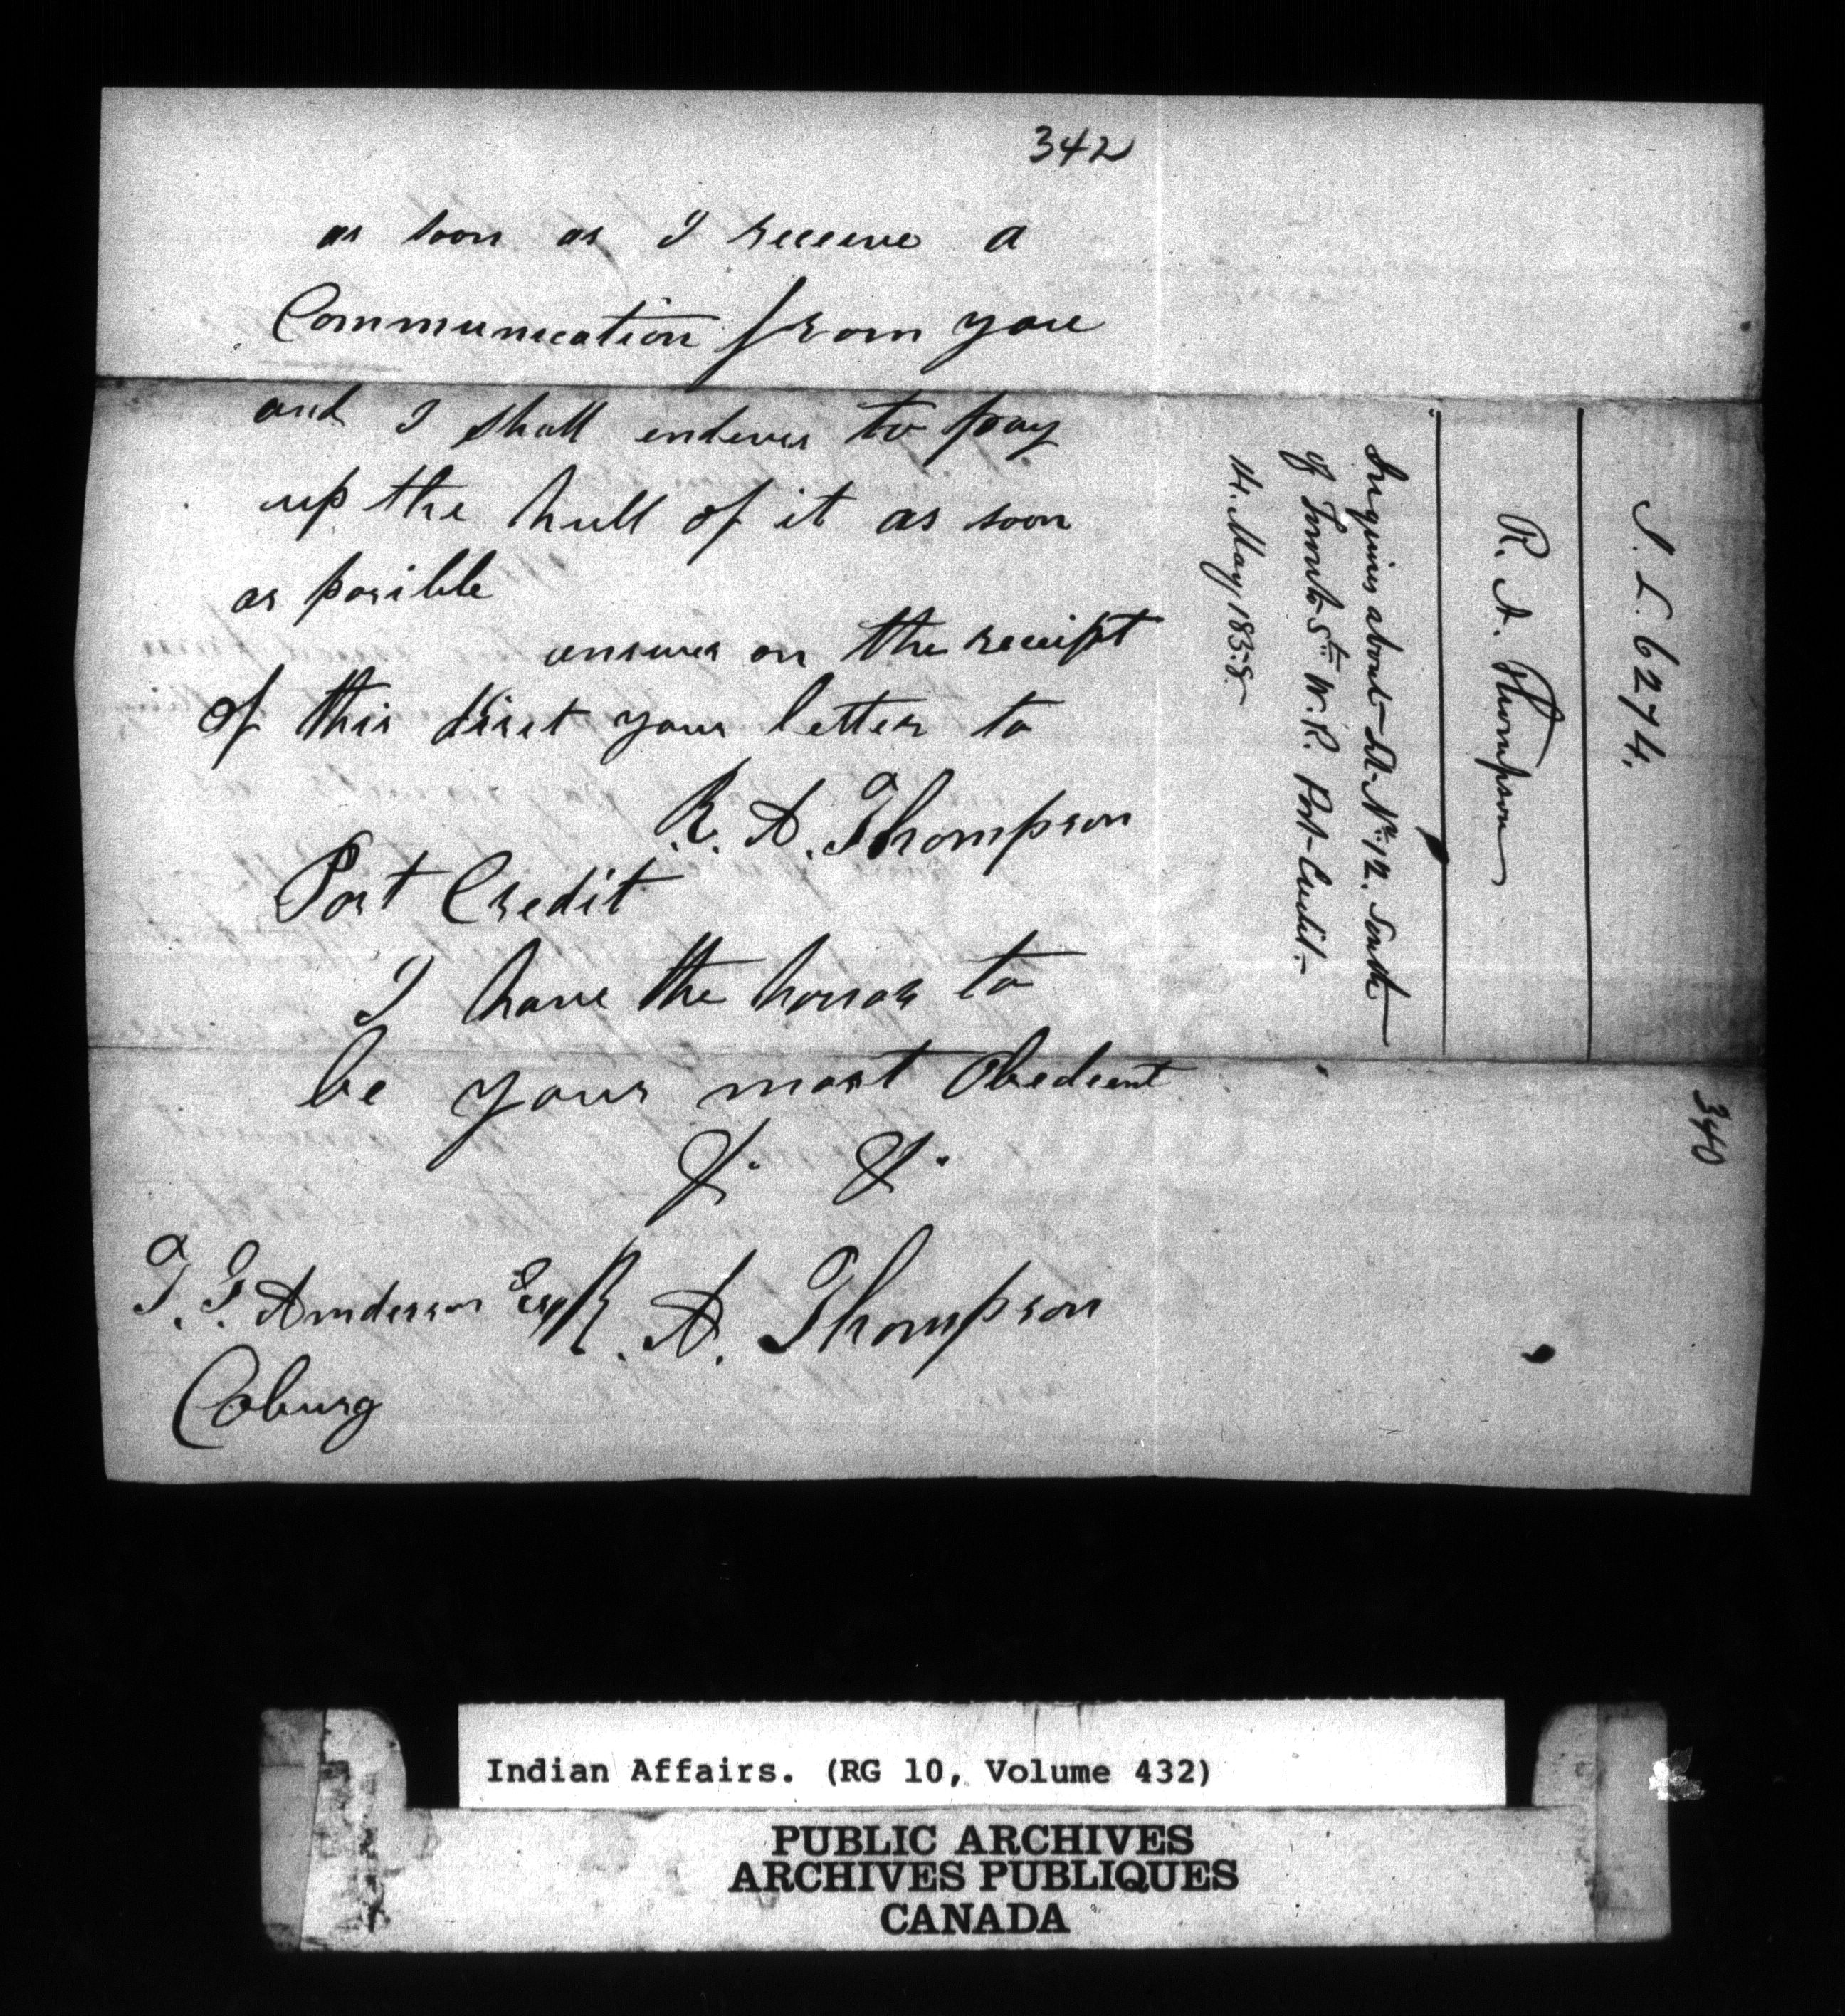 342
as soon as I receive a
Communication from you
and I shall endever to pay
up the hull of it as soon
as posible
answer on the receipt
of this direct your letter to
R. A. Thompson
Port Credit
I have the honor to
be your most Obedient
R. A. Thompson
T. G. Anderson Esq
Coburg
S. L. 6274.
R. A. Thompson
Inquires about Lt. No. 12. South
of Toronto 5th W. R. Port-Credit-
14. May 1858.
340
Indian Affairs. (RG 10, Volume 432)
PUBLIC ARCHIVES
ARCHIVES PUBLIQUES
CANADA